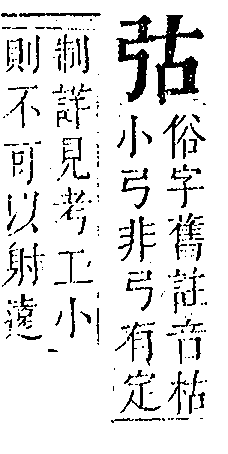 𢎵
俗字舊註音枯
小弓非弓有定
制詳見考工小
則不可以射遠